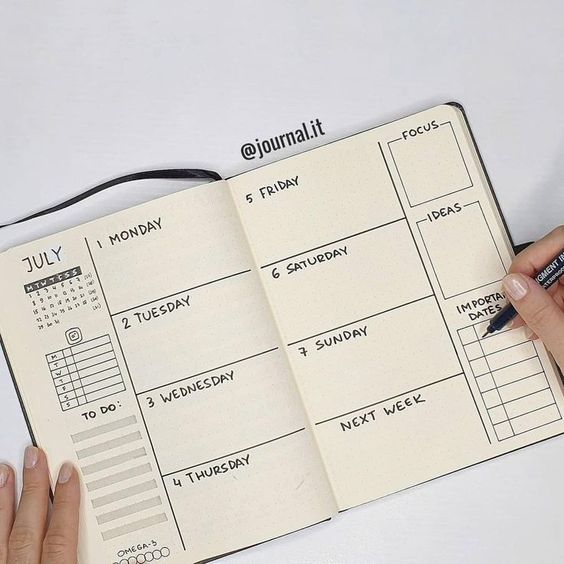 @journal.it
JULY
M T W T F S S
1 2 3 4 5 6 7
8 9 10 11 12 13 14
15 16 17 18 19 20 21
22 23 24 25 26 27 28
29 30 31
M
T
W
T
F
S
S
TO DO:
OMEGA-3
1 MONDAY
2 TUESDAY
3 WEDNESDAY
4 THURSDAY
5 FRIDAY
6 SATURDAY
7 SUNDAY
NEXT WEEK
FOCUS
IDEAS
DATES